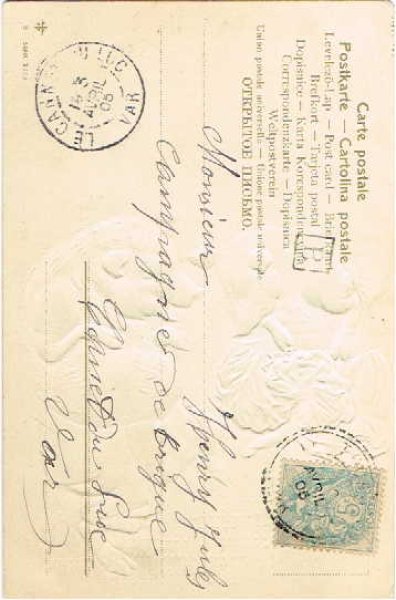 Carte postale
Postkarte — Cartolina postale
Levelező-Lap — Post card — Briefkaart
Brefkort — Tarjeta postal
Dopisnice — Karta Korespondencyjna
Correspondenzkarte — Dopisnica
Weltpostverein
Union postale universelle — Unione postale universale
ОТКРЫТОЕ ПИСЬМО.
P
LE CANNET DU LUC
VAR
AVRIL
05
AVRIL
05
5
Monsieur Henry Jules
Campagne de
Cannet du Luc
Var